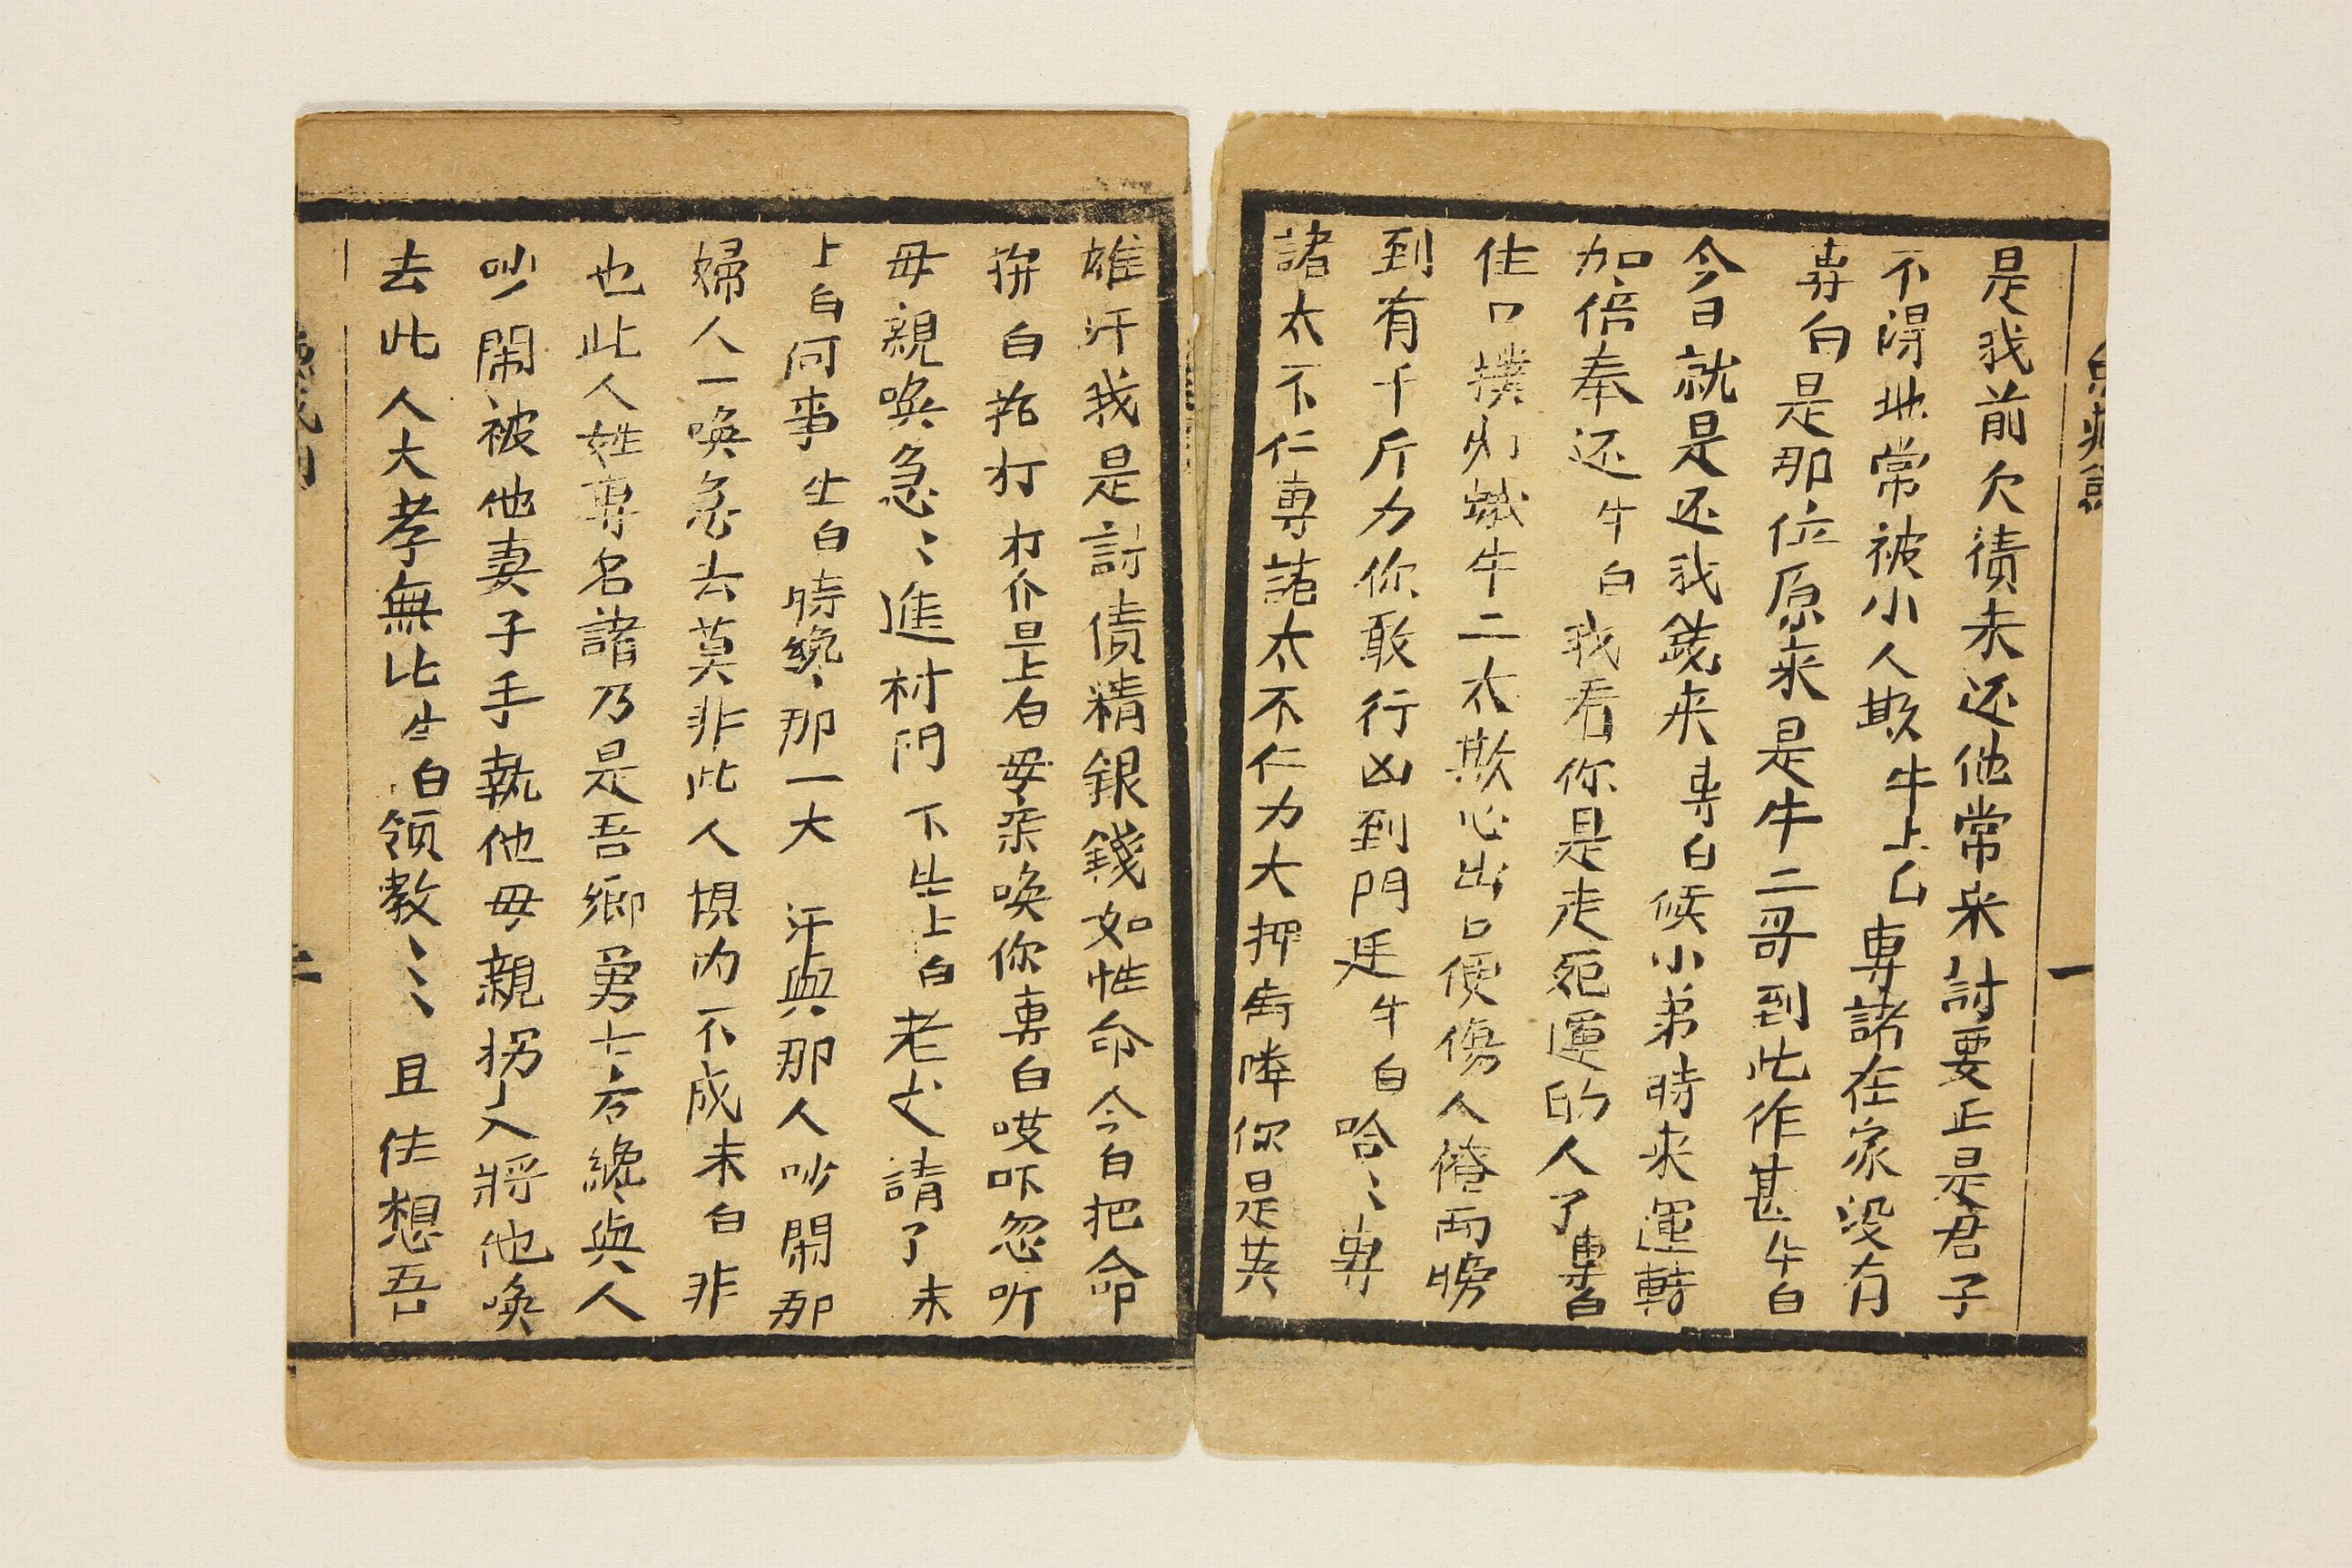 一
是我前欠債未还他常来討要正是君子
不得地常被小人欺牛上白專諸在家没有
專白是那位原来是牛二哥到此作甚牛白
今日就是还我錢来專白候小弟時来運轉
加倍奉还牛白我看你是走死運的人了專白
住口撲灯蛾牛二太欺心出口便傷人倦両膀
到有千斤力你敢行凶到門廷牛白哈〻專
諸太不仁專諸太不仁力大押街隣你是英
雄汗我是討債精銀錢如性命今白把命
拚白拚打打介旦上白毋亲唤你專白哎吓忽听
毋親唤急〻進村門下生上白老丈請了末
上白何事生白時纔那一大汗與那人吵閙那
婦人一唤急去莫非此人惧内不成末白非
也此人姓專名諸乃是吾鄉勇士方纔與人
吵閙被他妻子手執他毋親拐入將他唤
去此人大孝無比生白領教〻〻且住想吾